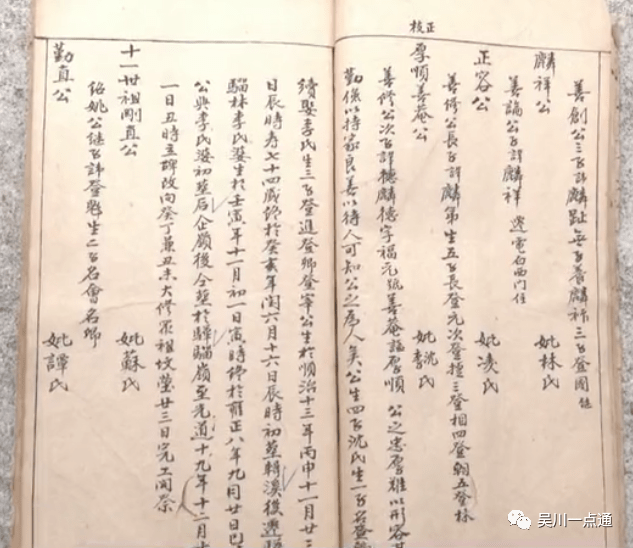 正校
善創公三子諱麟趾無子養麟祚三子登園
麟祥公 妣林氏
善謫公子諱麟祥 遷電白西門住
正容公 妣凌氏
善修公長子諱麟弟生五子長登元次登捷三登相四登朝五登林
厚順善菴公 妣沈氏李氏
善修公次子諱德麟德字福元號善菴諡厚順 公之忠厚難以形容其
勤儉以持家良善以待人可知公之為人矣公生四子沈氏生一子名登
續娶李氏生三子登進登卿登宰公生於順治十三年丙申十一月廿三
日辰時壽七十四歲終於癸亥年閏六月十六日辰時初葬轉溪後遷
騮林李氏婆生於壬寅年十一月初一日寅時終於雍正八年九月廿日巳
公與李氏婆初葬后企嶺後仝葬於驊騮嶺至光道十九年十二月十
一日丑時立碑改向癸丁兼丑未大修眾祖坟塋廿三日完工開祭
十一世祖剛直公 妣蘇氏
銘姚公繼子諱登魁生二子名會名
勤直公 妣譚氏
吴川一点通